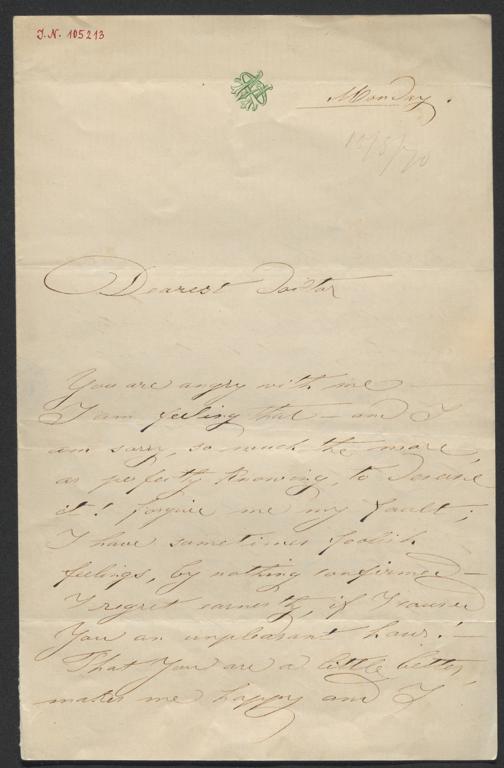 J.N. 105213
Monday.
Dearest Doctor
You are angry with me —
I am feeling that — and I
am sorry, so much the more,
as perfectly knowing, to deserve
it! forgive me my fault;
I have sometimes foolish
feelings, by nothing confirmed —
I regret earnestly, if I caused
You an unpleasant hour! —
That You are a little better,
makes me happy and I